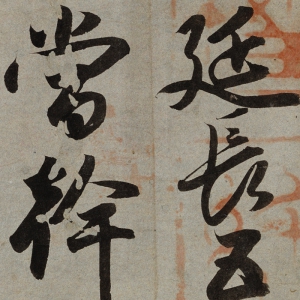 延長五
當幹